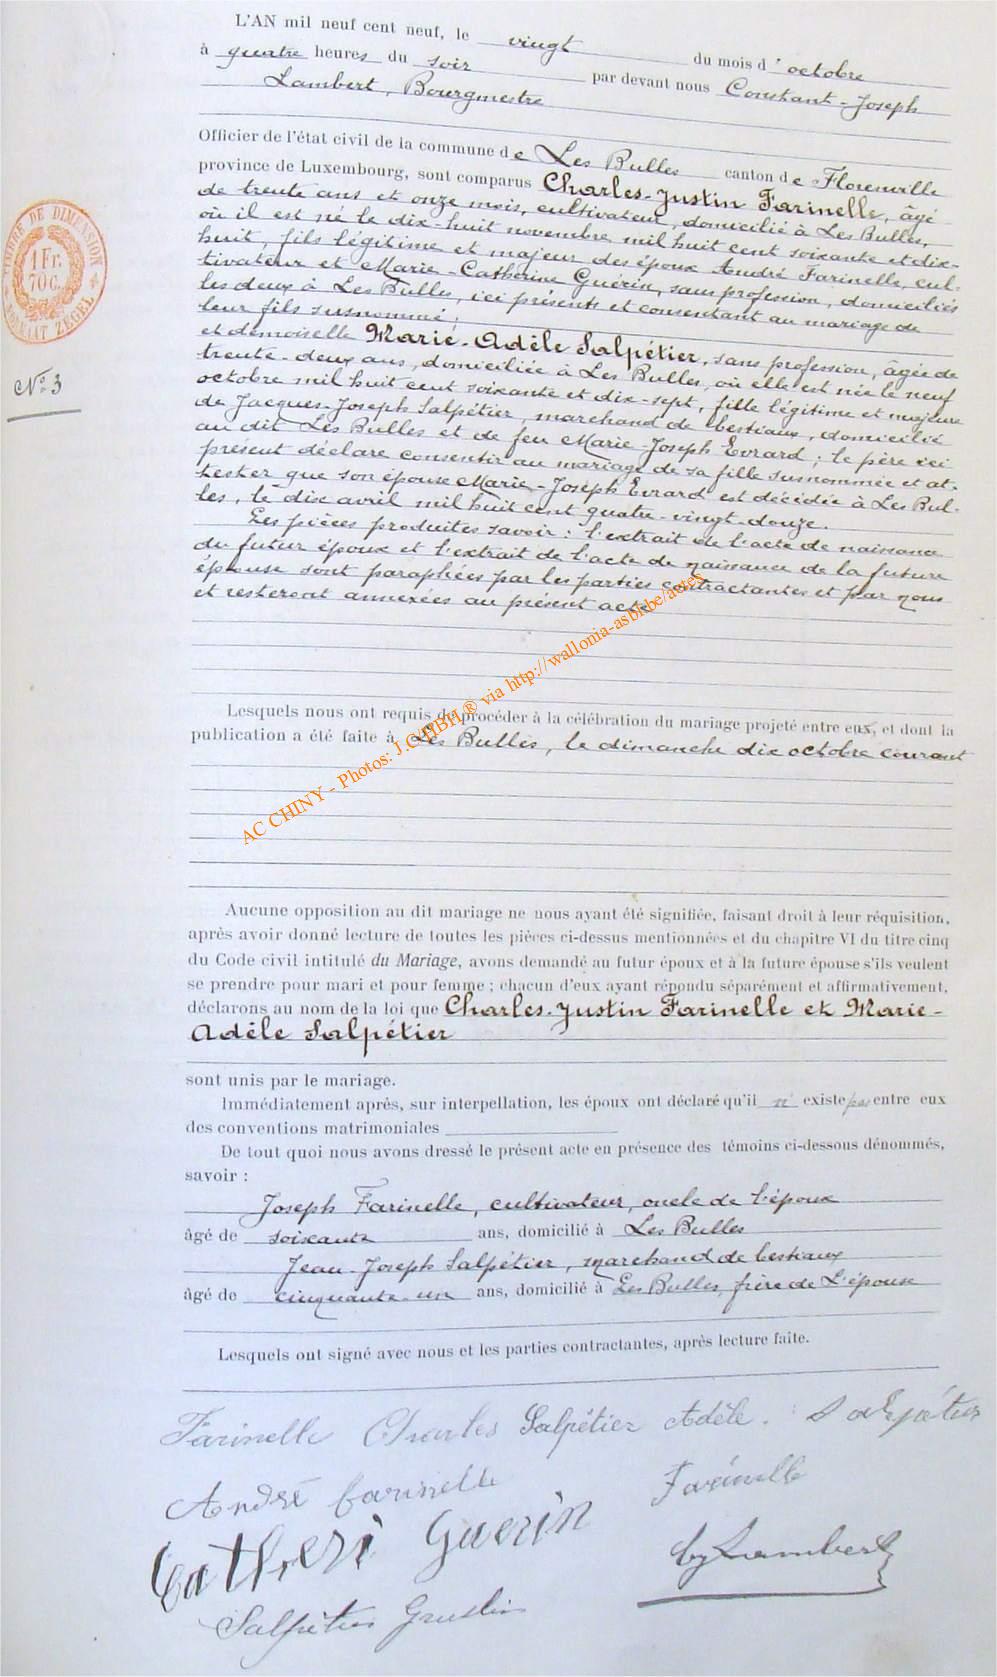 L'AN mil neuf cent neuf, le vingt du mois d'octobre
à quatre heures du soir par devant nous Constant-Joseph
Lambert, Bourgmestre
Officier de l'état civil de la commune de Les Bulles canton de Florenville
province de Luxembourg, sont comparus Charles-Justin Farinelle, âgé
de trente ans et onze mois, cultivateur, domicilié à Les Bulles,
où il est né le dix-huit novembre mil huit cent soixante et dix-
huit, fils légitime et majeur des époux André Farinelle, cul-
tivateur et Marie-Catherine Guérin, sans profession, domiciliés
les deux à Les Bulles, ici présents et consentant au mariage de
leur fils susnommé;
et demoiselle Marie-Adèle Salpétier, sans profession, âgée de
trente-deux ans, domiciliée à Les Bulles, où elle est née le neuf
octobre mil huit cent soixante et dix-sept, fille légitime et majeure
de Jacques-Joseph Salpétier, marchand de bestiaux, domicilié
au dit Les Bulles et de feu Marie-Joseph Evrard; le père ici
présent déclare consentir au mariage de sa fille susnommée et at-
tester que son épouse Marie-Joseph Evrard est décédée à Les Bul-
les, le dix avril mil huit cent quatre-vingt-douze.
Les pièces produites savoir: l'extrait de l'acte de naissance
du futur époux et l'extrait de l'acte de naissance de la future
épouse sont paraphées par les parties contractantes et par nous
et resteront annexées au présent acte
TIMBRE DE DIMENSION
1 Fr.
70 C.
FORMAAT ZEGEL
N° 3
Lesquels nous ont requis de procéder à la célébration du mariage projeté entre eux, et dont la
publication a été faite à Les Bulles, le dimanche dix octobre courant
AC CHINY - Photos: J.C.HBH.® via http://wallonia-asbl.be/actes
Aucune opposition au dit mariage ne nous ayant été signifiée, faisant droit à leur réquisition,
après avoir donné lecture de toutes les pièces ci-dessus mentionnées et du chapitre VI du titre cinq
du Code civil intitulé du Mariage, avons demandé au futur époux et à la future épouse s'ils veulent
se prendre pour mari et pour femme; chacun d'eux ayant répondu séparément et affirmativement,
déclarons au nom de la loi que Charles-Justin Farinelle et Marie-
Adèle Salpétier
sont unis par le mariage.
Immédiatement après, sur interpellation, les époux ont déclaré qu'il n' existe pas entre eux
des conventions matrimoniales
De tout quoi nous avons dressé le présent acte en présence des témoins ci-dessous dénommés,
savoir :
Joseph Farinelle, cultivateur, oncle de l'époux
âgé de soixante ans, domicilié à Les Bulles
Jean-Joseph Salpétier, marchand de bestiaux
âgé de cinquante-un ans, domicilié à Les Bulles, frère de L'épouse
Lesquels ont signé avec nous et les parties contractantes, après lecture faite.
Farinelle Charles Salpétier Adèle. Salpétier
André farinelle Farinelle
Catheri Guerin Cj Lambert
Salpétier